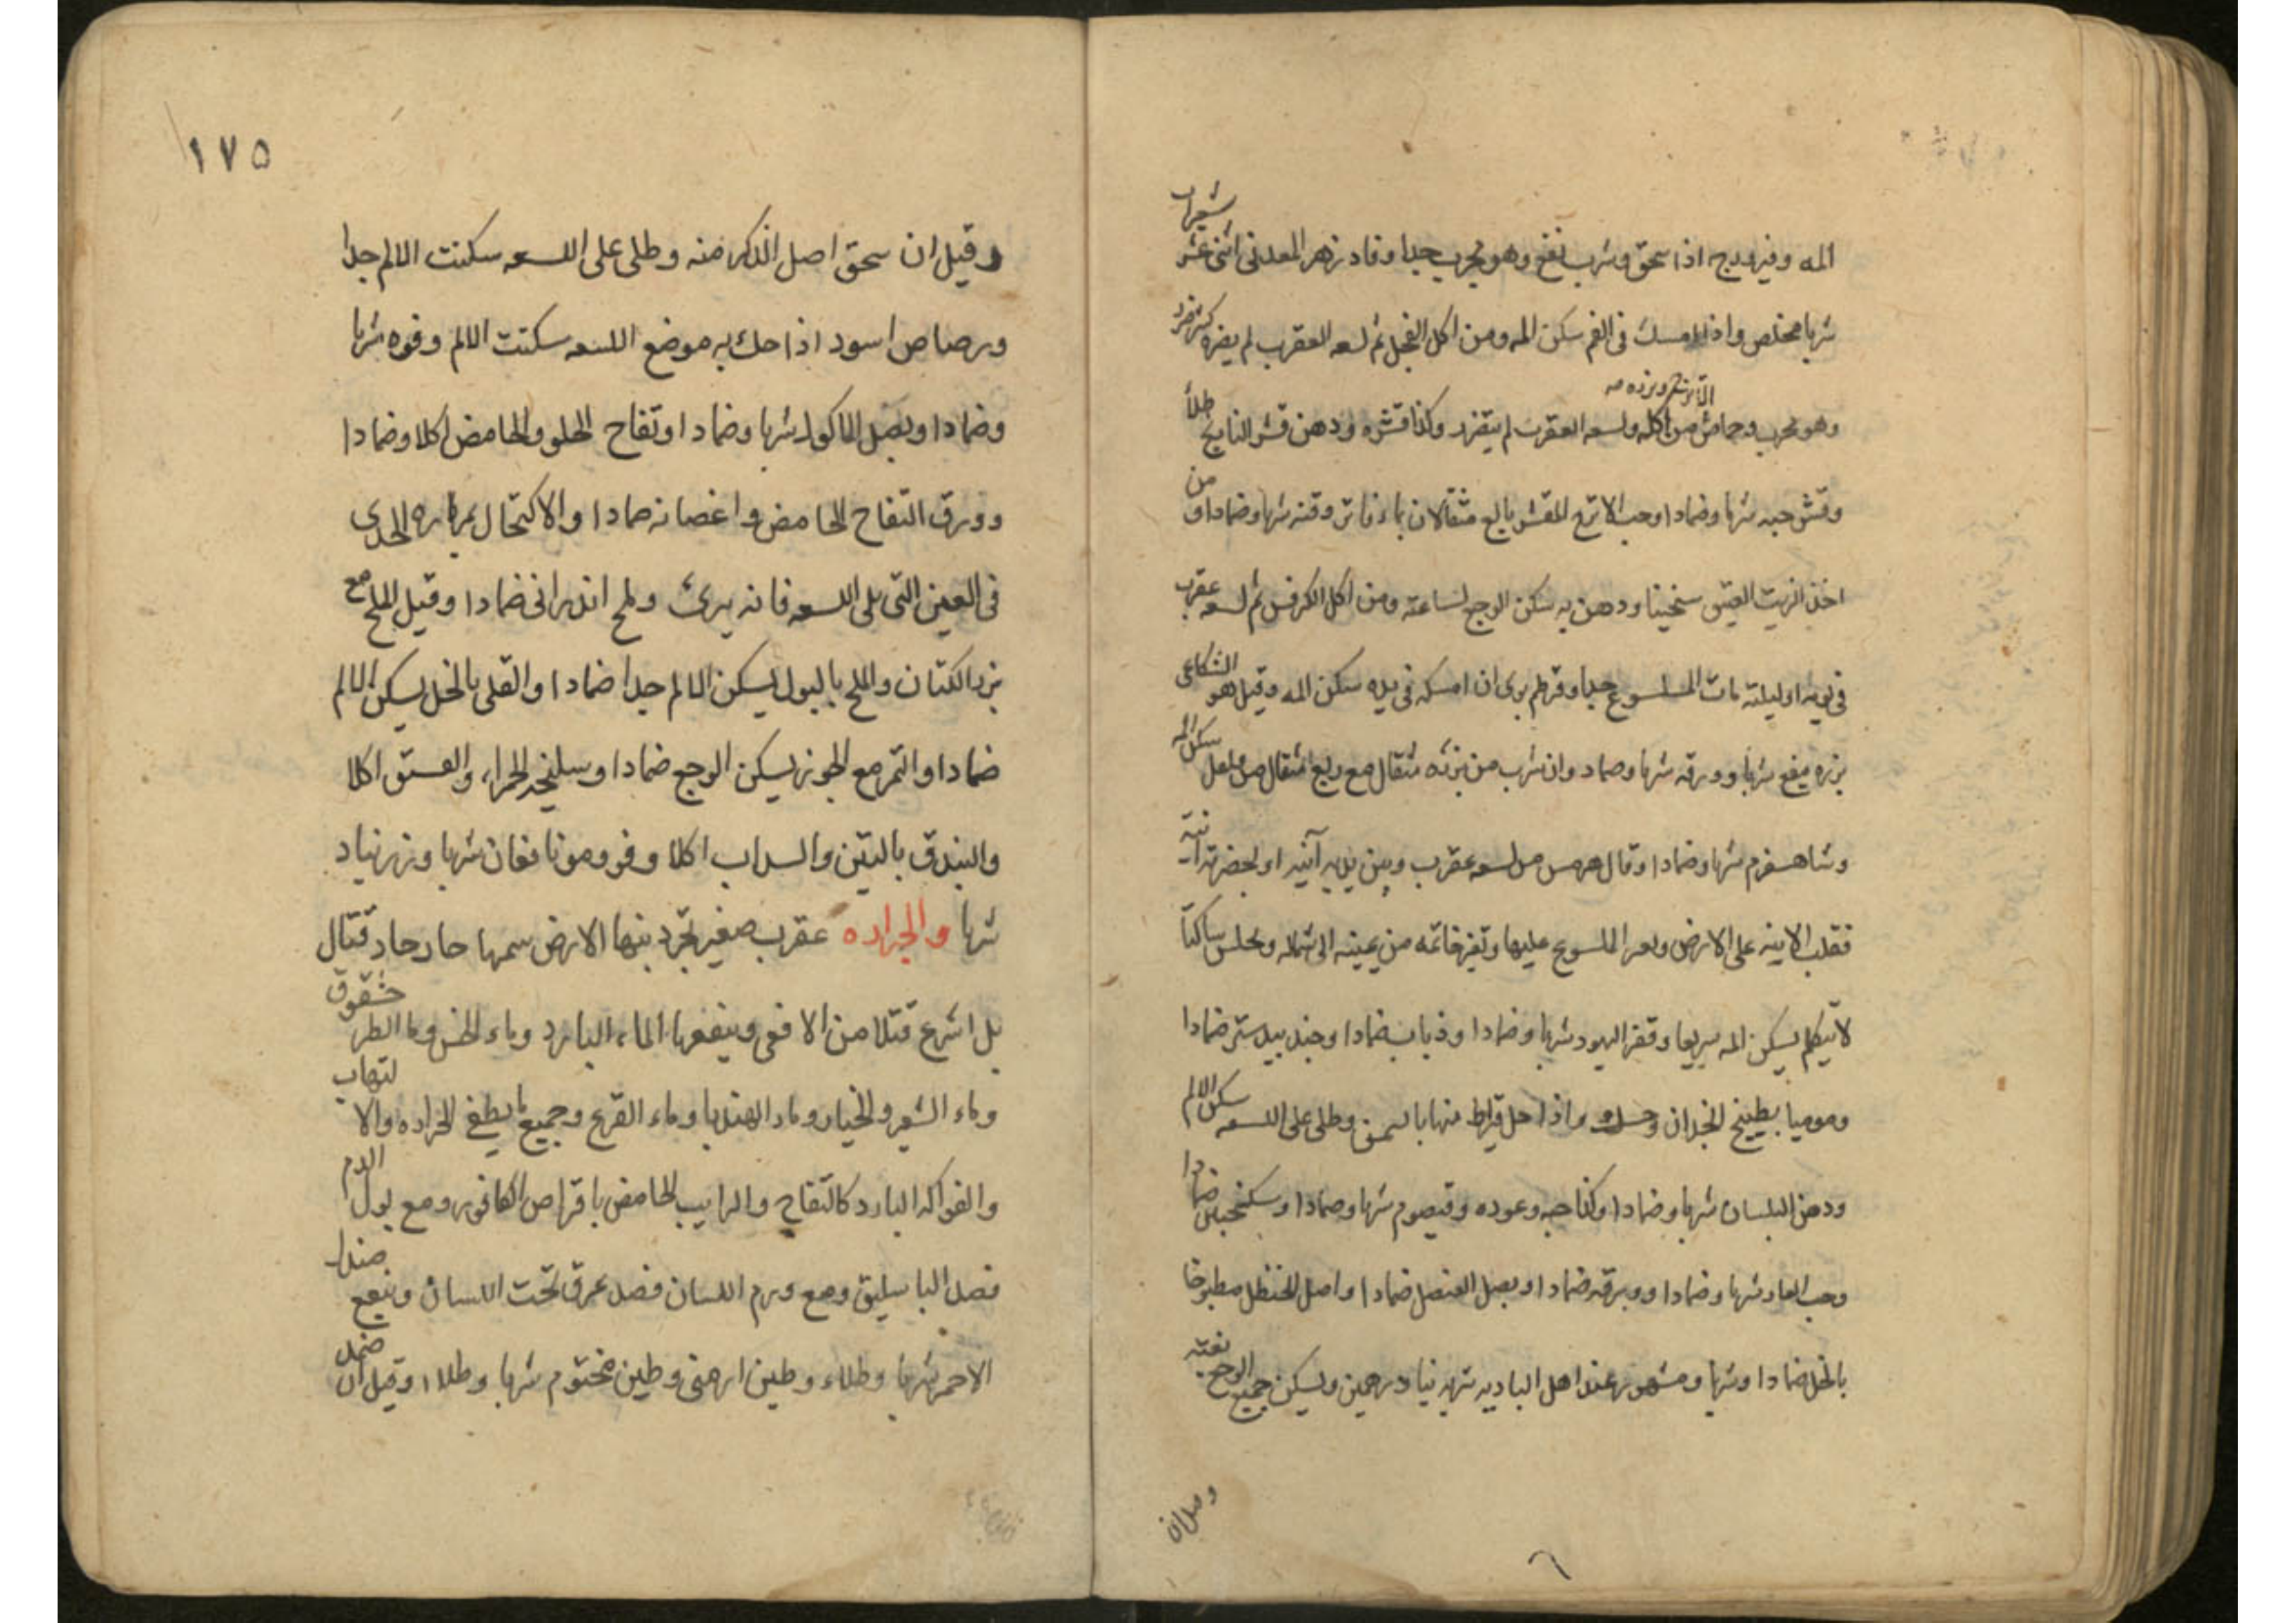 المه وفيروزج اذا سحق وشرب نفع وهو مجرب جيدا وفاد زهر المعدنى اثنى عشر شعيرات
شربا مخلص واذا امسك فى الفم سكن المه ومن اكل الفجل ثم لسعه العقرب لم يضره كثير ضرر
وهو مجرب وحماض الاترنج وبزره من اكله ولسعه العقرب لم يتضرر وكذا قشره ودهن قشر النارنج طلأ
وقشر حبه شربا وضمادا وحب الاترج المقشر بالغ مثقالان بماء فاتر وقنه شربا وضمادا ومن
اخذ الزيت العتيق سخينا ودهن به سكن الوجع لساعته ومن اكل الكرفس ثم لسعه عقرب
فى يومه او ليلته مات الملسوع جيدا وقرطم برى ان امسكه فى يده سكن المه وقيل هو الشكاعى
بزره ينفع شربا وورقه شربا وضماد وان شرب من بزره مثقال مع ربع مثقال من فلفل سكن المه
وشاهسفرم شربا وضمادا وقال هرمس من لسعه عقرب وبين يديه آنيه او بحضرته آنية
فقلب الانيه على الارض وقعد الملسوع عليها وتغير خاتمه من يمينه الى شماله وجلس ساكتا
لا يتكلم يسكن المه سريعا وقفر اليهود شربا وضمادا وذباب ضمادا وجندبيدستر ضمادا
وموميا بطبيخ انجدان وعسل واذا حل قيراط منها بالسمن وطلى على اللسعه سكن الالم
ودهن البلسان شربا وضمادا وكذا حبه وعوده وقيصوم شربا وضمادا وسكنجبين ضمادا
وحب الغار شربا وضمادا وورقه ضمادا وبصل العنصل ضمادا واصل الحنظل مطبوخا
بالخل ضمادا وشربا ومشهور عند اهل الباديه شربه درهمين ويسكن جميع الوجع بغته
وقيل ان
١٧٥
وقيل ان سحق اصل الذكر منه وطلى على اللسعه سكنت الالم جدا
ورصاص اسود اذا حك به موضع اللسعه سكنت الالم وفوه شربا
وضمادا وبصل الماكول شربا وضمادا وتفاح الحلو والحامض اكلا وضمادا
وورق التفاح الحامض واغصانه ضمادا والاكتحال بمراره الجدى
فى العين التى يلى اللسعه فانه يبرئ وملح اندرانى ضمادا وقيل الملح مع
بزر الكتان والملح بالبول يسكن الالم جدا ضمادا والقلى بالخل يسكن الالم
ضمادا والتمر مع الجوز يسكن الوجع ضمادا وسليخه الحمراء والفستق اكلا
والبندق بالتين والسداب اكلا وفوومونافعان شربا وزرنباد
شربا والجراده عقرب صغير تجرد بذنبها الارض سمها حار حاد قتال
بل اسرع قتلا من الافعى وينفعها الماء البارد وماء الخس وماء الطرخشقوق
وماء الشعير والخيار وماء الهندبا وماء القرع وجميع ما يطفئ الحراره والالتهاب
والفواكه البارد كالتفاح والرايب الحامض باقراص الكافور ومع بول الدم
فصد الباسليق ومع ورم اللسان فصد عرق تحت اللسان وينفع صندل
الاحمر شربا وطلاء وطين ارمنى وطين مختوم شربا وطلاء وقيل ان ضمد